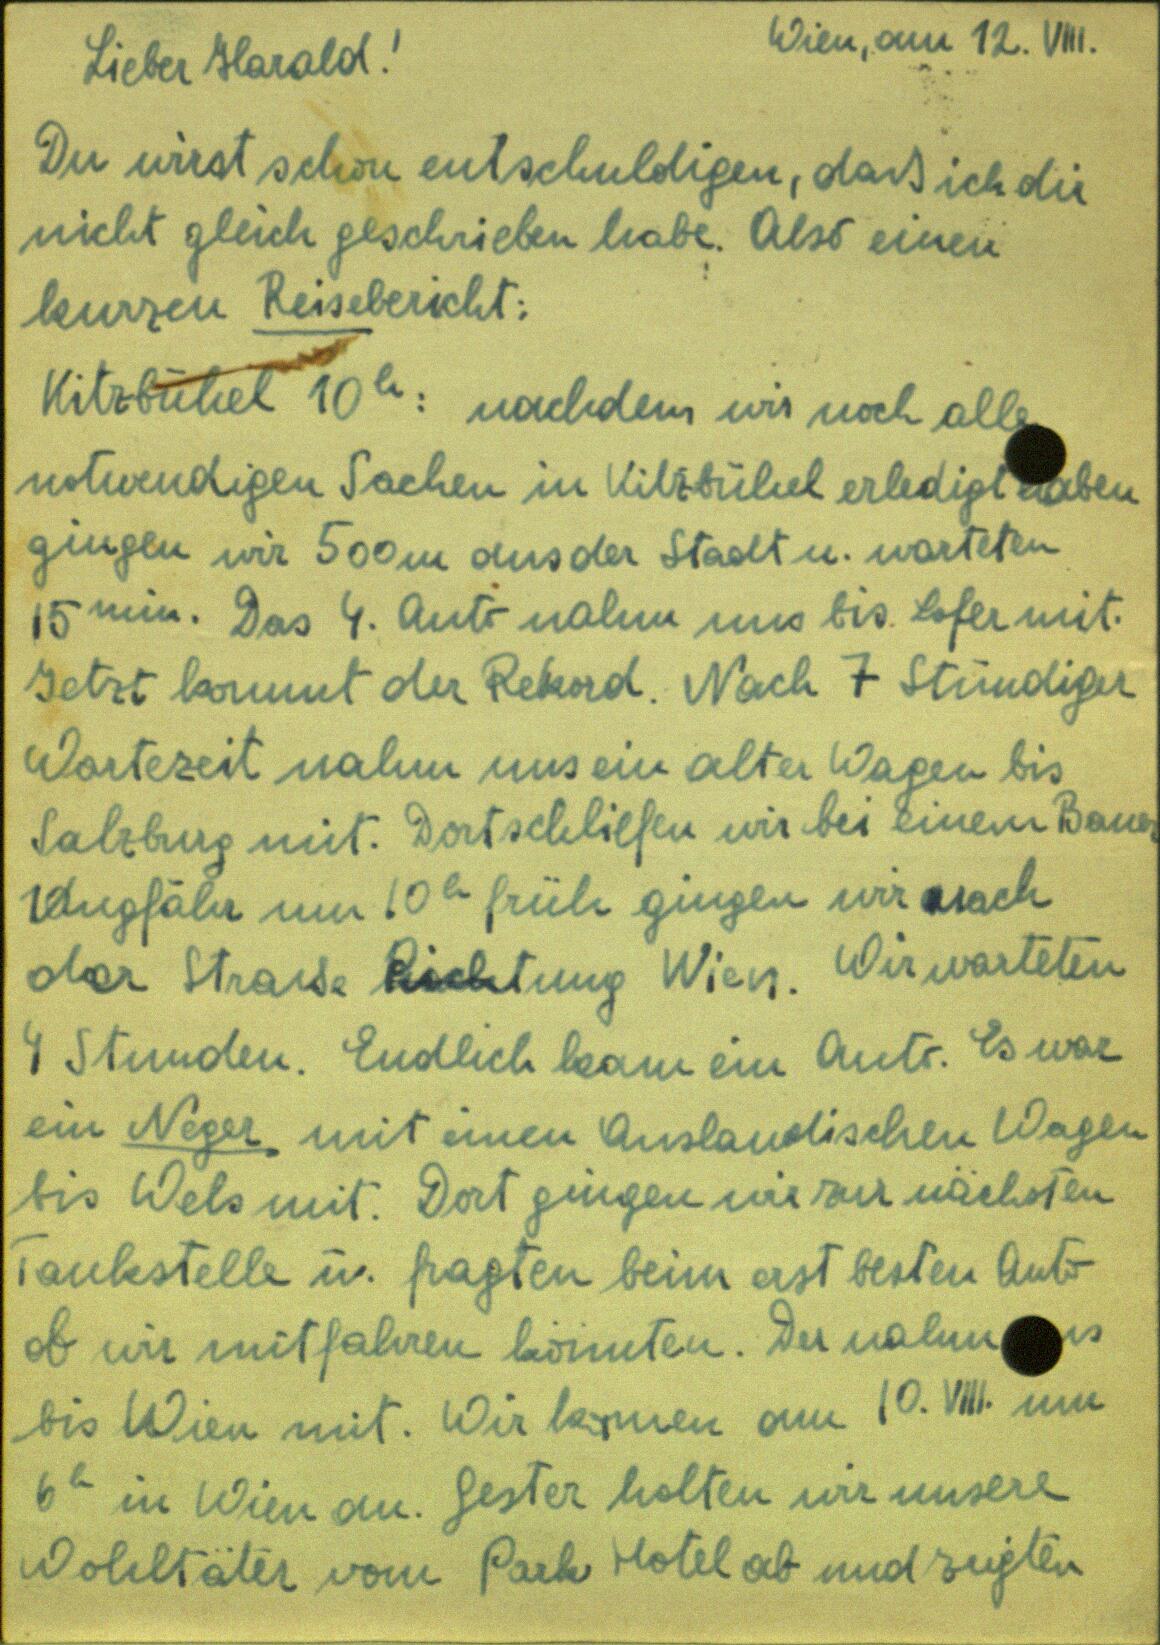 Wien, am 12. VIII.
Lieber Harald!
Du wirst schon entschuldigen, daß ich dir
nicht gleich geschrieben habe. Also einen
kurzen Reisebericht:
Kitzbühel 10h: nachdem wir noch alle
notwendigen Sachen in Kitzbühel erledigt haben
gingen wir 500m aus der Stadt u. warteten
15 min. Das 4. Auto nahm uns bis Lofer mit.
Jetzt kommt der Rekord. Nach 7 Stündiger
Wartezeit nahm uns ein alter Wagen bis
Salzburg mit. Dort schliefen wir bei einem Bauer
Ungfähr um 10h früh gingen wir nach
der Straße Richtung Wien. Wir warteten
4 Stunden. Endlich kam ein Auto. Es war
ein Neger mit einen Auslandischen Wagen
bis Wels mit. Dort gingen wir zur nächsten
Tankstelle u. fragten beim erst besten Auto
ob wir mitfahren könnten. Der nahm uns
bis Wien mit. Wir kamen am 10. VIII. um
6h in Wien an. Gester holten wir unsere
Wohltäter vom Park Hotel ab und zeigten